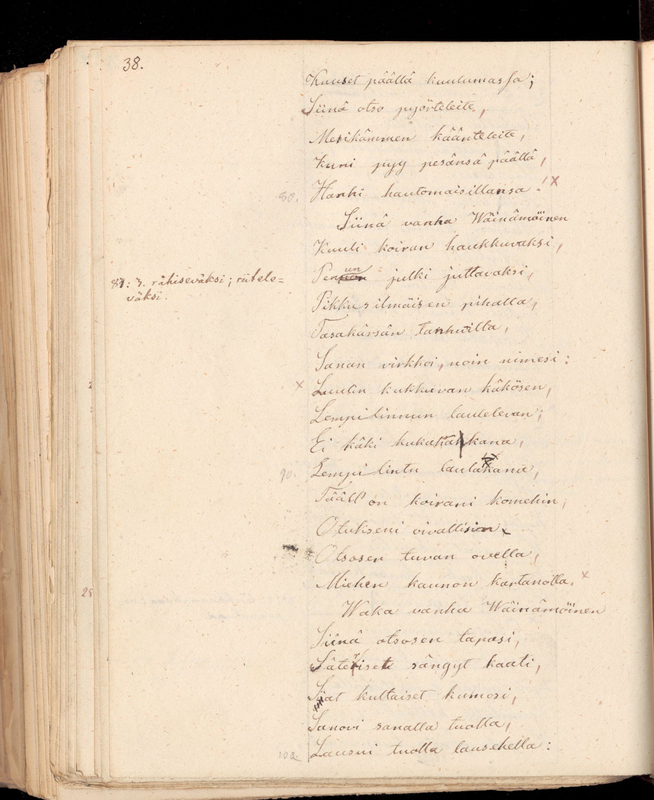 38.
Kuuset päältä kuulumassa;
Siinä otso pyörteleite,
Mesikämmen käänteleite,
Kuni pyy pesänsä päällä,
80. Hanhi hautomaisillansa. x
Siinä vanha Wäinämöinen
Kuuli koiran haukkuvaksi,
83: 3. rähiseväksi; riitele=
väksi.
Penun jutki juttavaksi,
Pikkusilmäisen pihalla,
Tasakärsän tanhuilla,
Sanan virkkoi, noin nimesi:
x Luulin kukkuvan käkösen,
Lempilinnun laulelevan;
Ei käki kukahakkana,
90. Lempilintu laulakana,
Tääll' on koirani komehin,
Otukseni oivallisin
Otsosen tuvan ovella,
Miehen kaunon kartanolla. x
Waka vanha Wäinämöinen
Siinä otsosen tapasi,
Säteriset sängyt kaati,
Sijat kultaiset kumosi,
Sanovi sanalla tuolla,
100. Lausui tuolla lausehella: